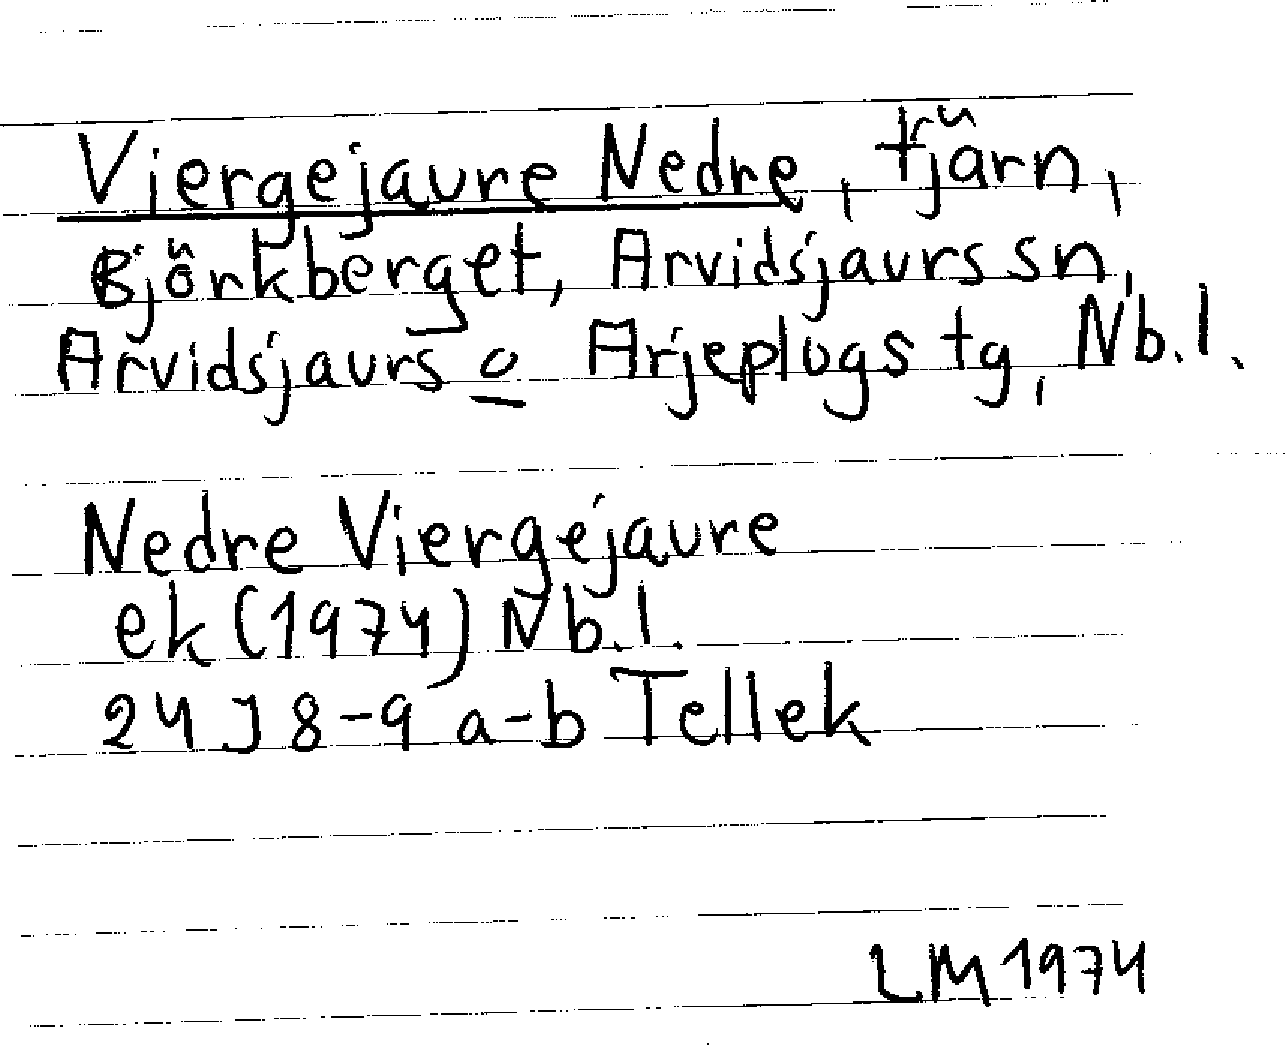 Viergejaure Nedre, tjärn,
Björkberget, Arvidsjaurs sn,
Arvidsjaurs o Arjeplogs tg, Nb.l.
Nedre Viergejaure
ek (1974) Nb.l.
24J 8-9 a-b Tellek
LM 1974